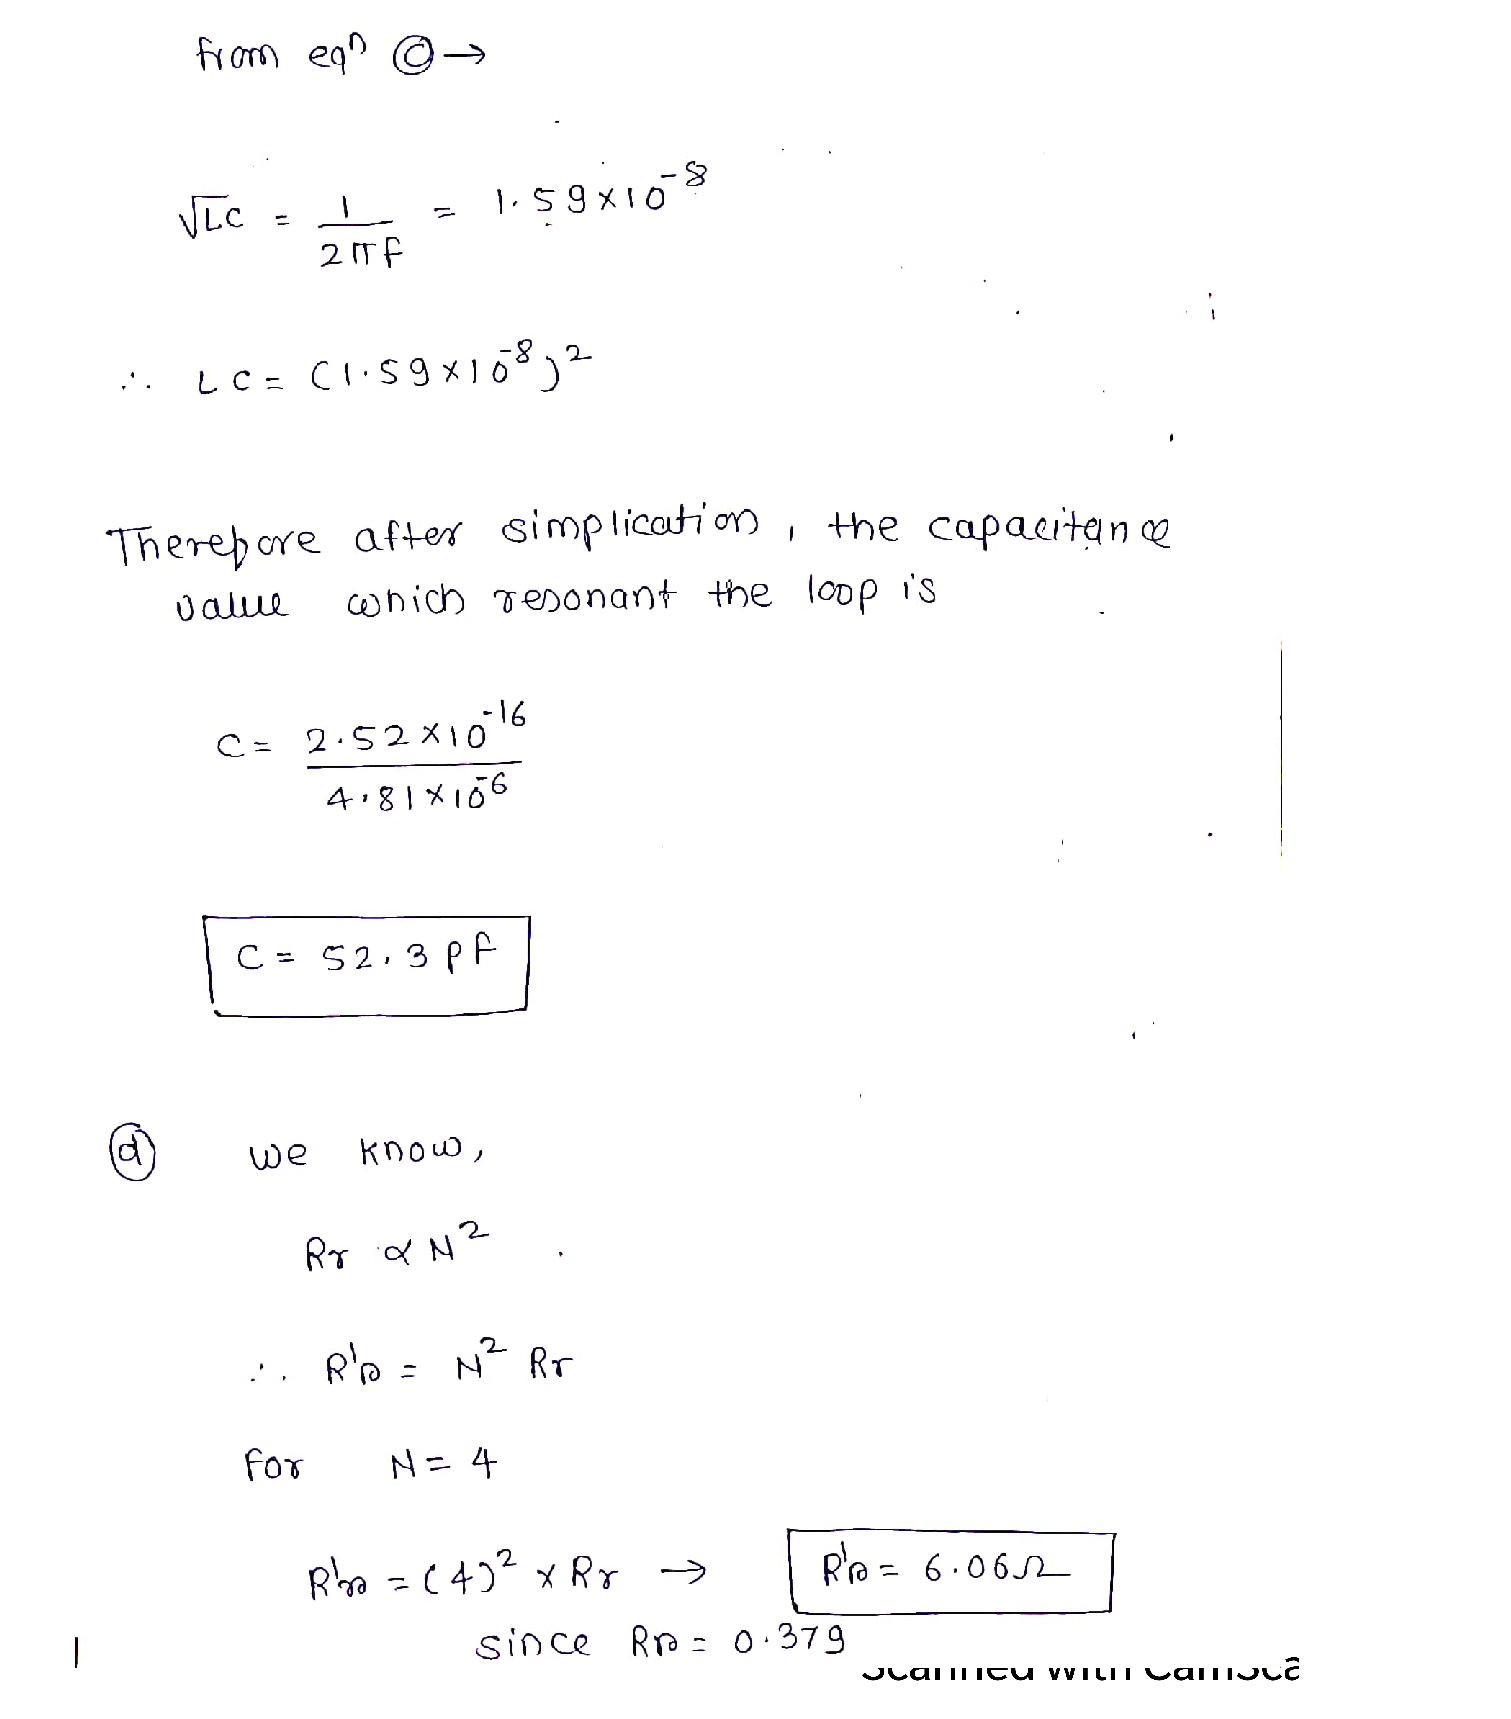 from eqⁿ ⓒ →
√LC = 1/2πf = 1.59×10⁻⁸
∴ LC = (1.59×10⁻⁸)²
Therefore after simplication, the capacitance
value which resonant the loop is
C = 2.52×10⁻¹⁶ / 4.81×10⁻⁶
C = 52.3 pf
ⓓ we know,
Rr ∝ N²
∴ R'r = N² Rr
For N = 4
R'r = (4)² × Rr → R'r = 6.06Ω
since Rr = 0.379